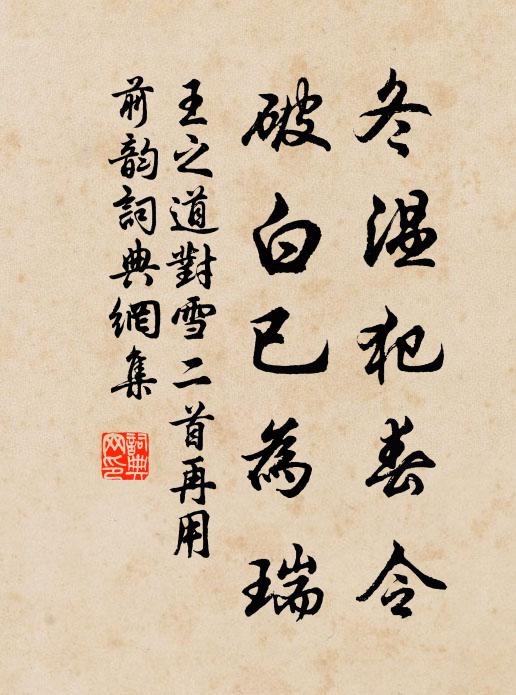 冬溫犯春令
破白已為瑞
王之道對雪二首再用
前韵詞典網集
詞典网印